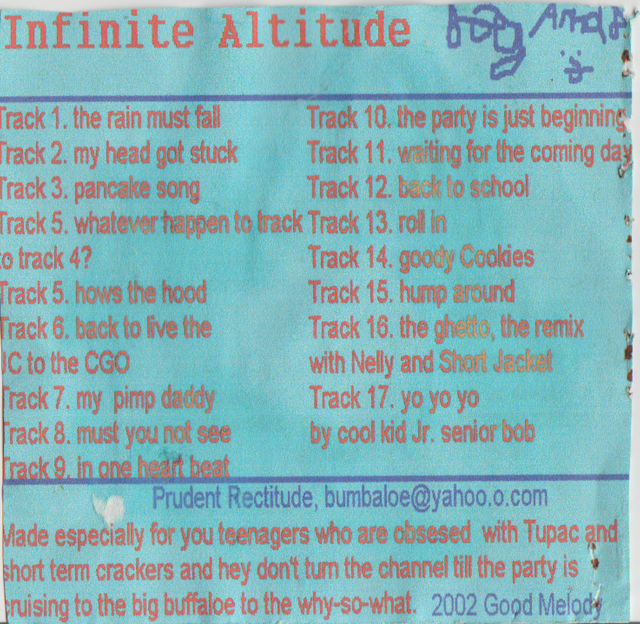 Infinite Altitude
Track 1. the rain must fall
Track 2. my head got stuck
Track 3. pancake song
Track 5. whatever happen to track
to track 4?
Track 5. hows the hood
Track 6. back to live the
JC to the CGO
Track 7. my pimp daddy
Track 8. must you not see
Track 9. in one heart beat
Track 10. the party is just beginning
Track 11. waiting for the coming day
Track 12. back to school
Track 13. roll in
Track 14. goody Cookies
Track 15. hump around
Track 16. the ghetto, the remix
with Nelly and Short Jacket
Track 17. yo yo yo
by cool kid Jr. senior bob
Prudent Rectitude, bumbaloe@yahoo.o.com
Made especially for you teenagers who are obsesed with Tupac and
short term crackers and hey don't turn the channel till the party is
cruising to the big buffaloe to the why-so-what. 2002 Good Melody